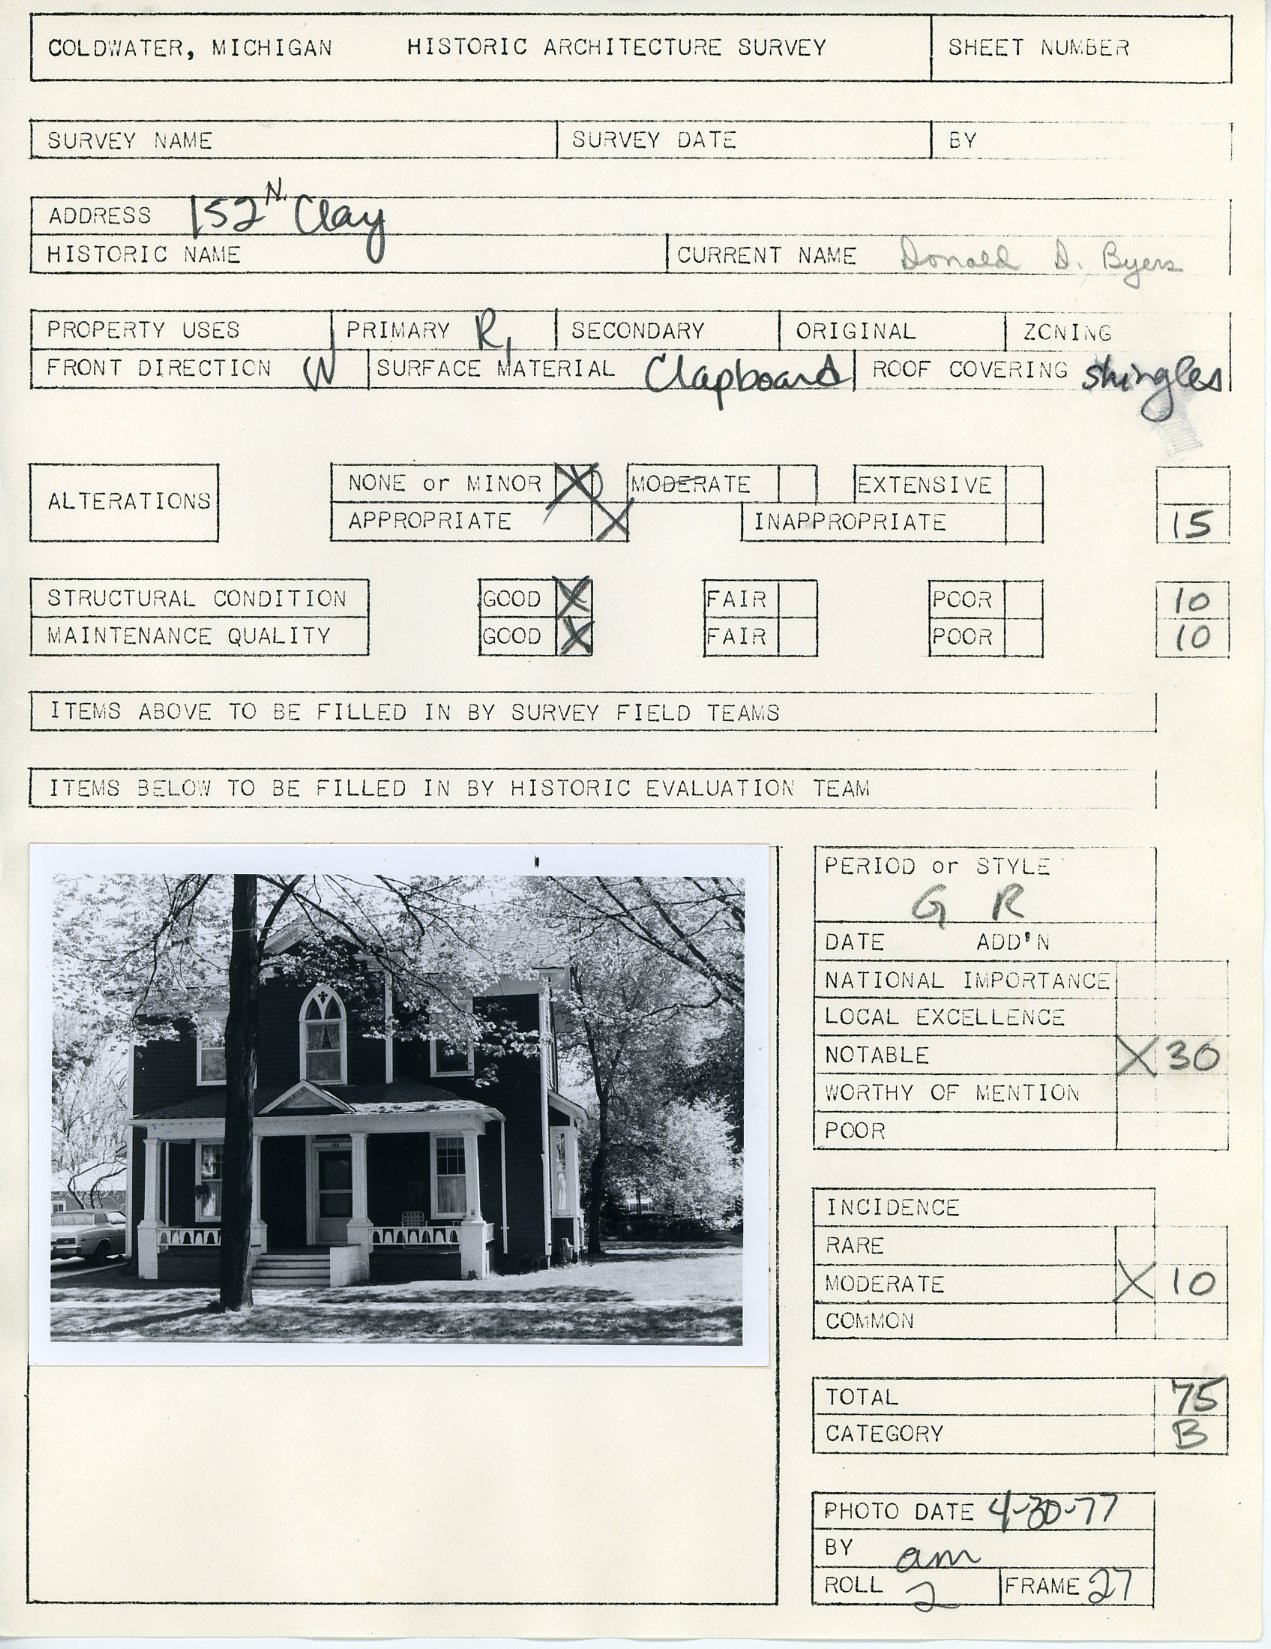 COLDWATER, MICHIGAN HISTORIC ARCHITECTURE SURVEY SHEET NUMBER
SURVEY NAME SURVEY DATE BY
ADDRESS 152 N. Clay
HISTORIC NAME CURRENT NAME Donald D. Byers
PROPERTY USES PRIMARY R, SECONDARY ORIGINAL ZONING
FRONT DIRECTION W SURFACE MATERIAL Clapboard ROOF COVERING shingles
ALTERATIONS
NONE or MINOR X MODERATE EXTENSIVE
APPROPRIATE X INAPPROPRIATE 15
STRUCTURAL CONDITION GOOD X FAIR POOR 10
MAINTENANCE QUALITY GOOD X FAIR POOR 10
ITEMS ABOVE TO BE FILLED IN BY SURVEY FIELD TEAMS
ITEMS BELOW TO BE FILLED IN BY HISTORIC EVALUATION TEAM
PERIOD or STYLE
G R
DATE ADD'N
NATIONAL IMPORTANCE
LOCAL EXCELLENCE
NOTABLE X 30
WORTHY OF MENTION
POOR
INCIDENCE
RARE
MODERATE X 10
COMMON
TOTAL 75
CATEGORY B
PHOTO DATE 4-30-77
BY am
ROLL 2 FRAME 27